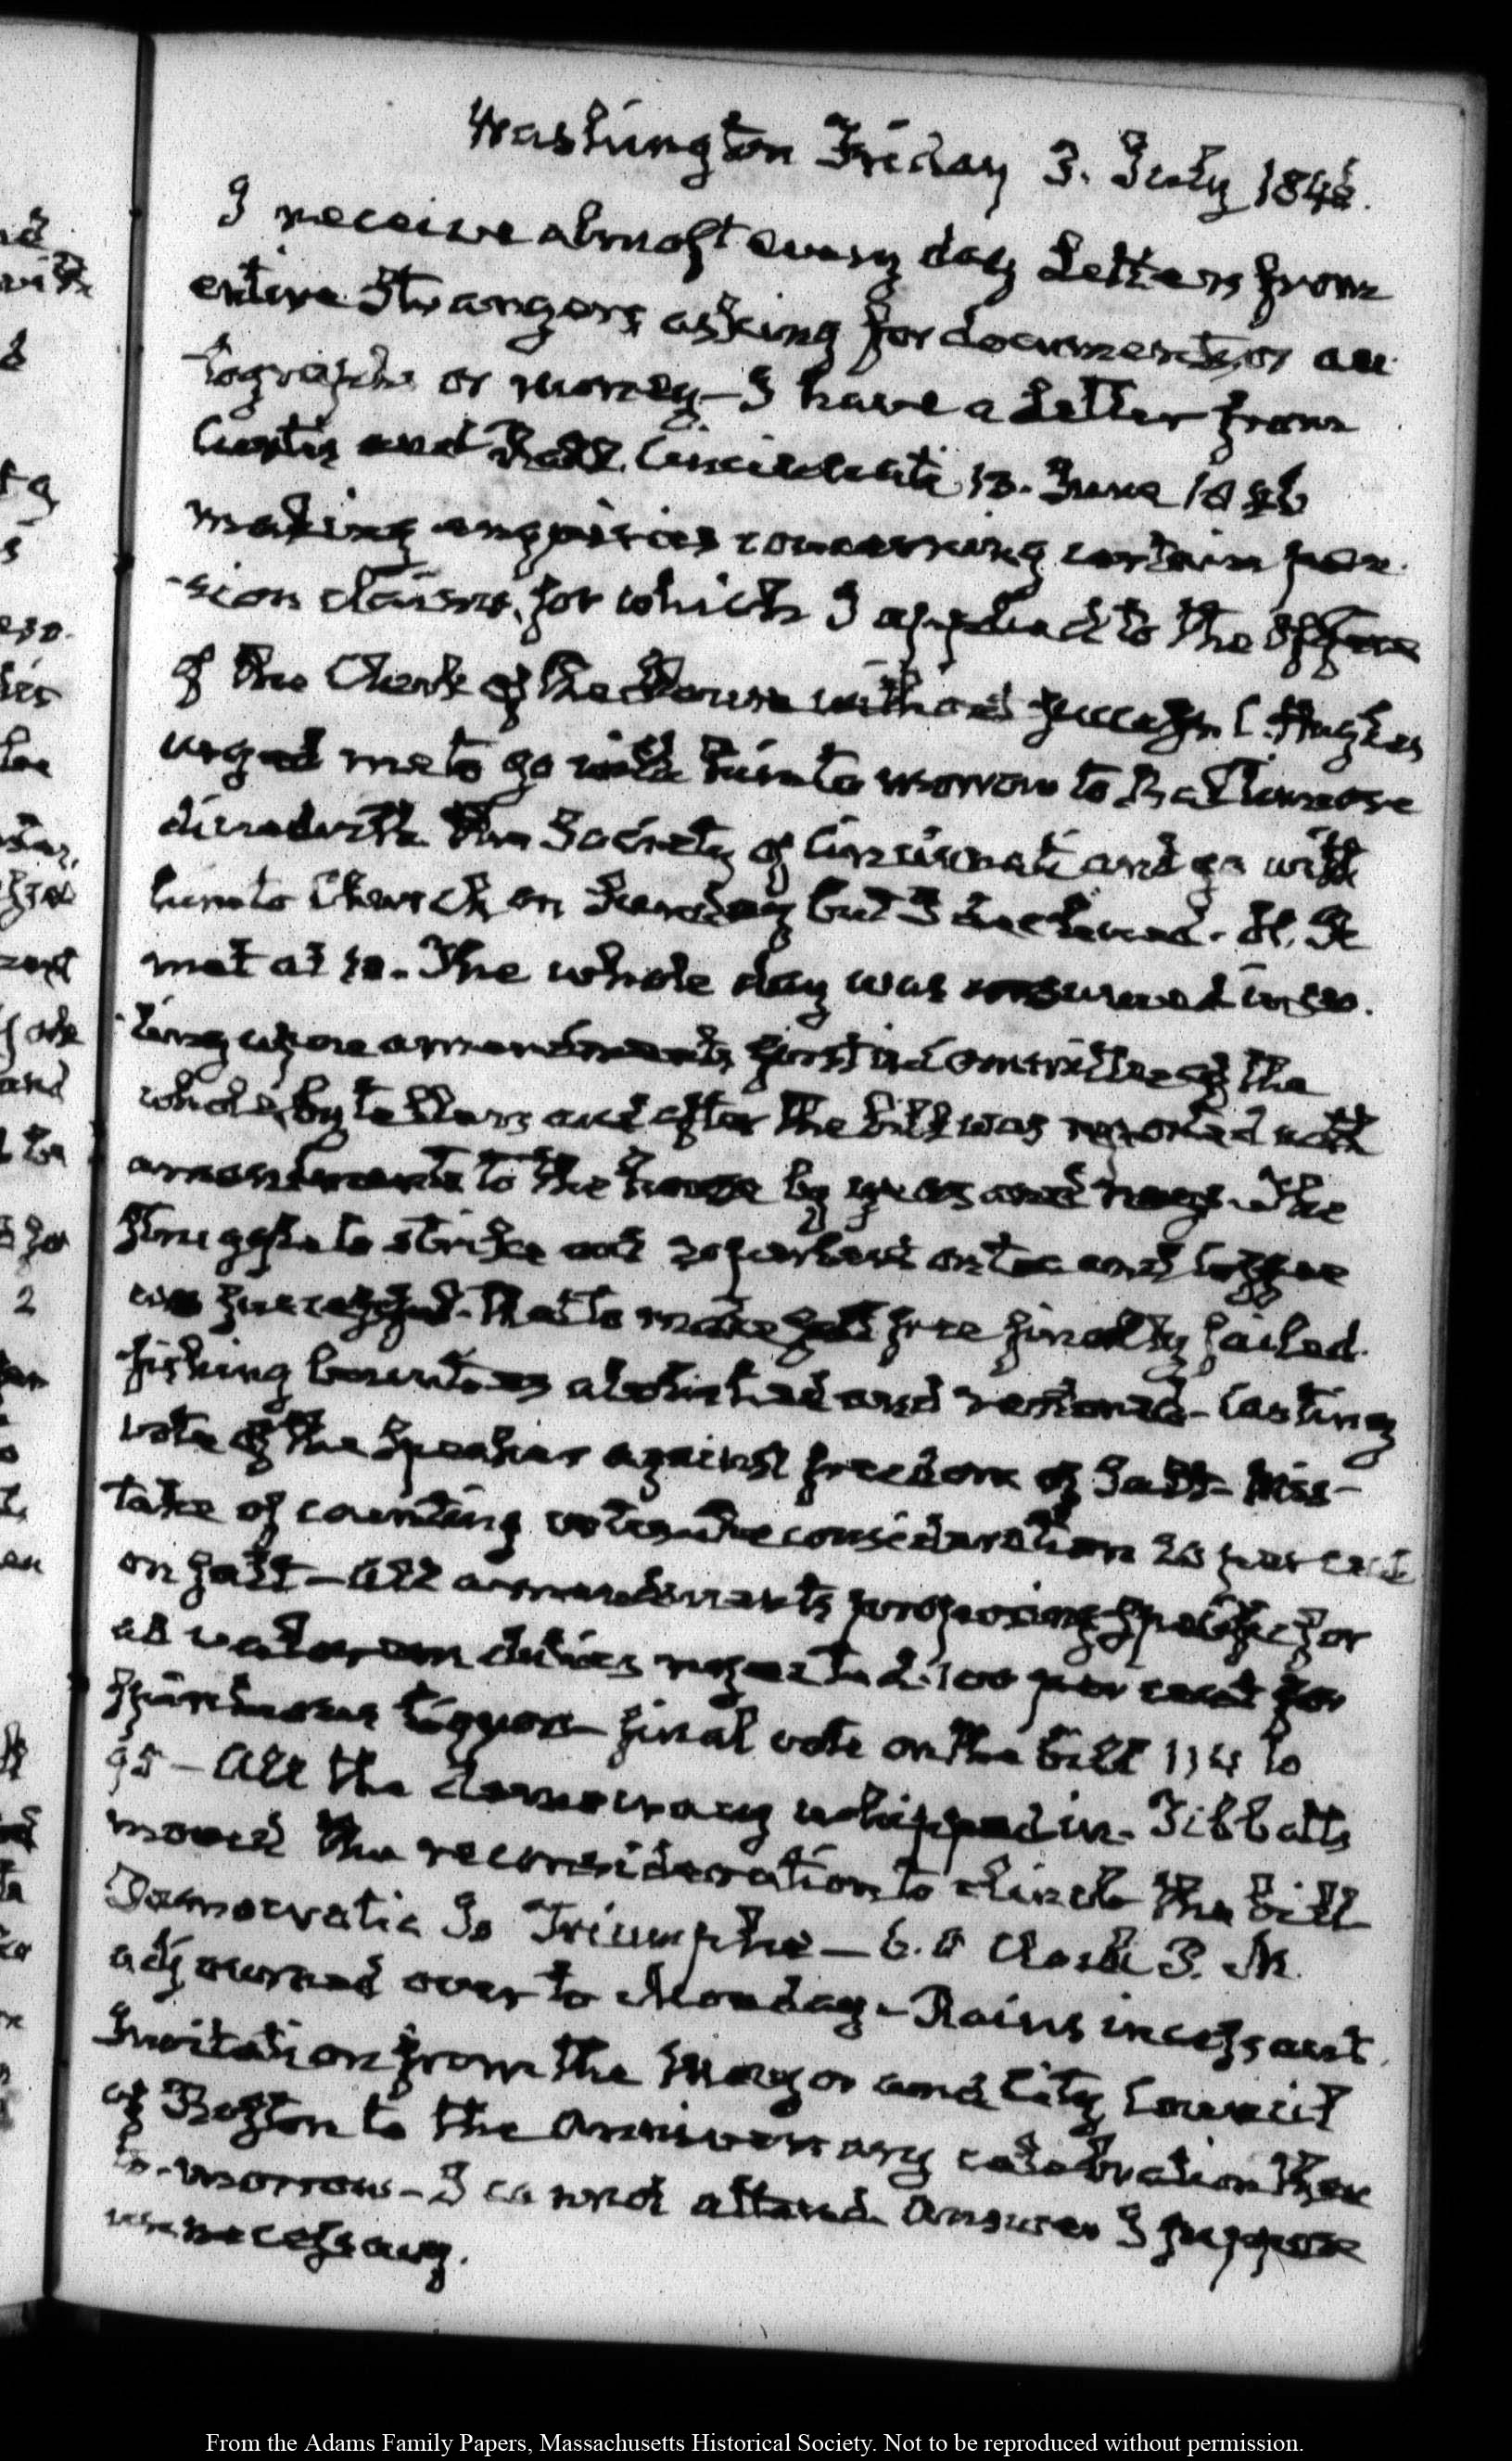 Washington Friday 3. July 1846.
I receive almost every day Letters from
entire Strangers asking for documents, or au-
-tographs or money — I have a Letter from
Curtis and Cincinnati 13. June 1846
making enquiries concerning certain pen-
-sion claims, for which I applied to the Office
of the Clerk of the House without success. C. Hughes
urged me to go with him to morrow to Baltimore
dine with the Society of Cincinnati and go with
him to Church on Sunday but I declined. H. R
met at 10. The whole day was consumed in vo-
-ting upon amendments first in Committee of the
whole, by tellers and after the bill was reported with
amendments to the house by yeas and nays. The
struggle to strike out 20 per cent on tea and coffee
was successful. that to make salt free finally failed.
fishing bounties abolished and restored. Casting
vote of the Speaker against freedom of Salt — Mis-
take of counting votes. Reconsideration 20 per cent
on salt — All amendments proposing specific for
ad valorem duties rejected. 100 per cent for
spirituous liquors — final vote on the bill 114 to
95 — All the democracy whipped in. Tibbatts
moved the reconsideration to clinch the bill
Democratic Io Triumphe — 6. O Clock P. M.
adjourned over to Monday — Rains incessant.
Invitation from the Mayor and City Council
of Boston to the Anniversary celebration there
to-morrow — I cannot attend. Answer I suppose
unnecessary.
From the Adams Family Papers, Massachusetts Historical Society. Not to be reproduced without permission.